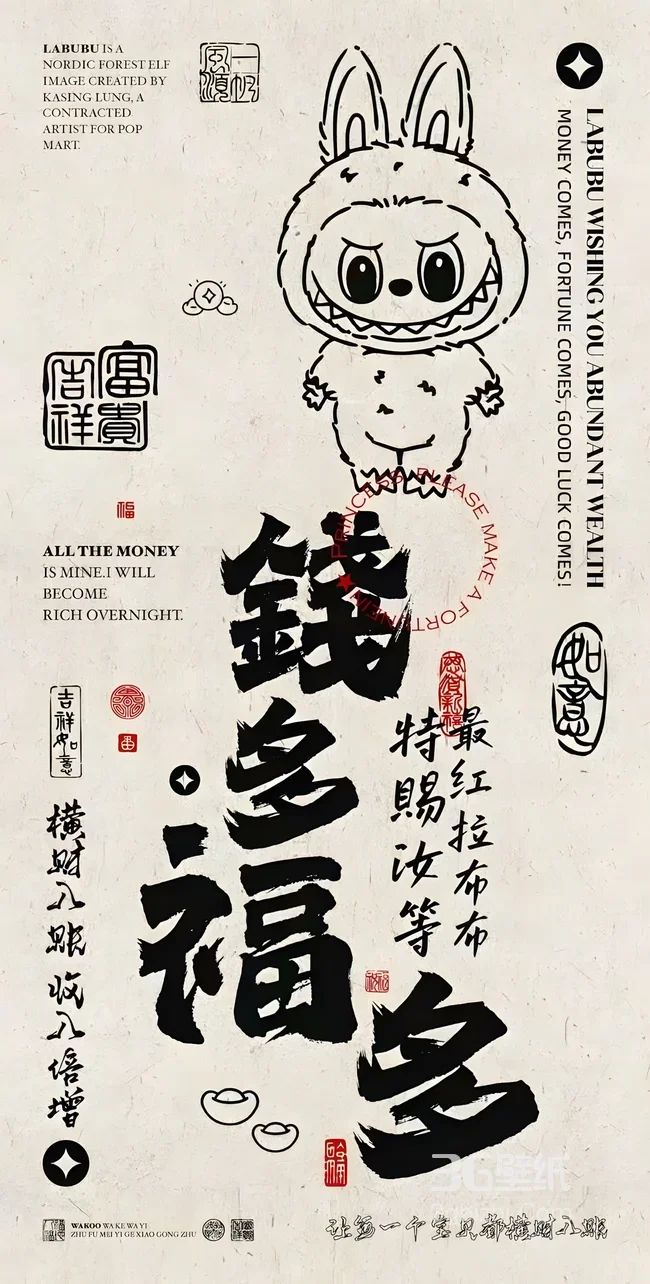 LABUBU IS A
NORDIC FOREST ELF
IMAGE CREATED BY
KASING LUNG, A
CONTRACTED
ARTIST FOR POP
MART.
一帆
風順
LABUBU WISHING YOU ABUNDANT WEALTH
MONEY COMES, FORTUNE COMES, GOOD LUCK COMES!
富貴
吉祥
福
PRINCESS PLEASE MAKE A FORTUNE
ALL THE MONEY
IS MINE.I WILL
BECOME
RICH OVERNIGHT.
如意
錢多
福多
最红拉布布
特賜汝等
吉祥如意
横财入账收入倍增
WAKOO WA KE WA YI
ZHU FU MEI YI GE XIAO GONG ZHU
让每一个宝贝都横财入账
3G壁纸